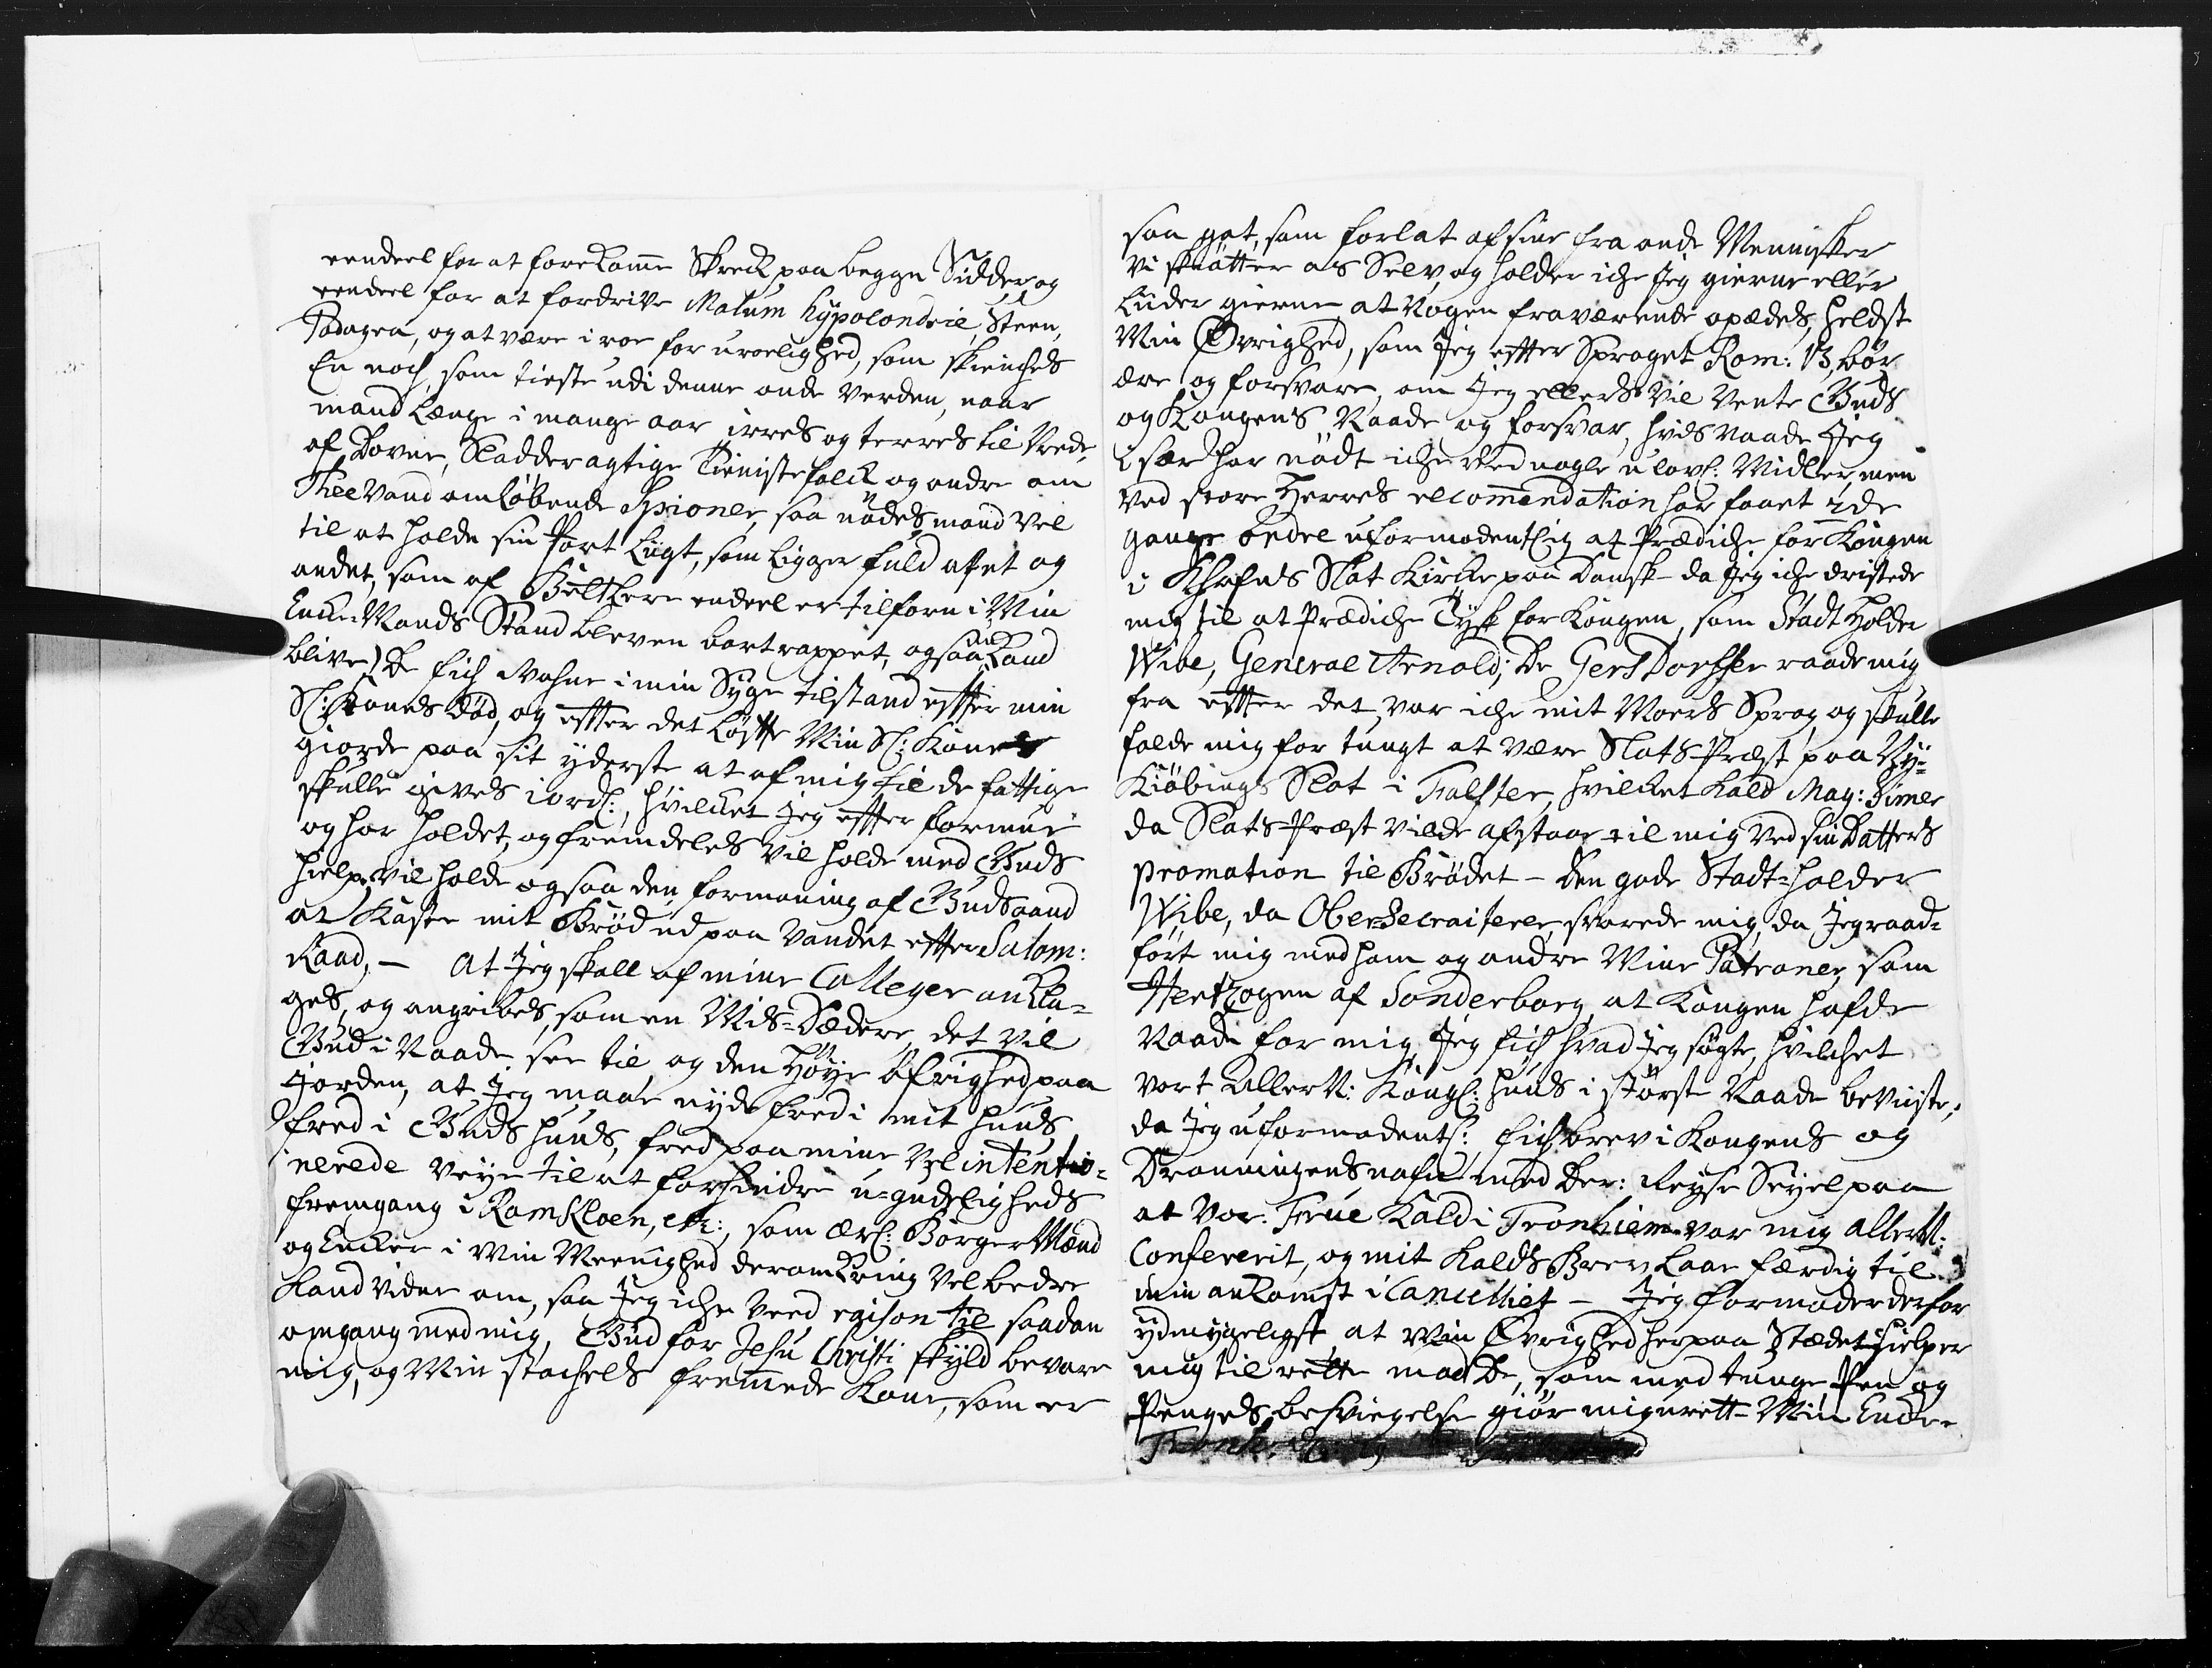 eendeel for at forekome Skreck paa begge Sidder og
eendeel for at fordrive Malum hypocondrie, Steen,
Podagra, og at være i roe for uroelighed, som skienches
En noch, som tieste udi denne onde Verden, naar
mand Længe i mange aar irres og terres til Vrede,
af Dovne, Sladderagtige Tienistefolck og andre om
TheeVand omløbende Spioner, saa nødes mand vel
til at holde sin Port Lugt, som Ligger fuld af et og
andet, som af Beltzere endeel er tilforn i Min
Encke-Mands Stand bleven bortrappet, og saa Kand
blive) De fich Vahne i min Syge tilstand effter min
Sl: Kones død, og effter det Løffte Min Sl: Kone
giorde paa sit yderste at af mig til de fattige
skulle gives iordl:, hvilcket Jeg effter formue
og har holdet, og fremdeles vil holde med Guds
hielp, vil holde ogsaa den formaning af Guds aand
at Kaste mit Brød ud paa Vandet effter Salom:
Raad, - At Jeg skall af mine Colleger ankla-
ges, og angribes, som en Mis-Dædere, det vil
Gud i Naade see til og den Høye Øfrighed paa
Jorden, at Jeg maae nyde fred i mit huus
fred i Guds huus, fred paa mine Velintentio-
nerede Veye til at forhindre u-gudeligheds
fremgang i Ramkloen, etc:, som ærl: Borger Mænd
og Encker i Min Meenighed deromkring vel bedre
Kand vidne om, saa Jeg iche veed raison til saadan
omgang med mig, Gud for Jesu Christi skyld bevare
mig, og Min stachels fremede Kone, som er
saa got, som forlat af sine fra onde Mennisker
Vi skiøtter os Selv, og holder iche Jeg gierne eller
Lüder gierne at Nogen fraværende opædes, heldst
Min Øvrighed, som Jeg effter Sproget Rom: 13, bør
ære og forsvare, om Jeg ellers Vil Vente Guds
og Kongens Naade og forsvar, hvis Naade Jeg
især har nødt iche ved nogle ulovl: Midler, men
ved store Herres recomendation har faaet 2de
gange ordre uformodentlig at Prædiche for Kongen
i Khafns Slot Kircke paa Dansk - da Jeg iche dristede
mig til at Prædiche Tysk for Kongen, som Stadt Holder
Wibe, General Arnold, De Gersdorffer raade mig
fra effter det var iche mit Moers Sprog, og skulle
falde mig for tungt at være Slots-Præst paa Ny-
Kiøbings Slot i Falster, hvilcket Kald Mag: Birner
da Slots-Præst vilde afstaae til mig ved sin Datters
promotion til Brødet - Den gode Stadt-holder
Wibe, da OberSecraiterer, svarede mig, da Jeg raad-
ført mig med ham og andre Mine Patroner, som
Hertzogen af Sonderborg, at Kongen hafde
Naade for mig, Jeg fich hvad Jeg søgte, hvilchet
vort Allern: Kongl: huus i størst Naade beviiste,
da Jeg uformodentl: fich brev i Kongens og
Dronningens nafn med Der: Reyse Seyel paa
at Vor: Frue Kald i Tronhiem var mig allern:
Confererit, og mit Kalds Brev Laae færdig til
min ankomst i Cancelliet - Jeg formoder derfor
ydmygeligst, at Min Øvrighed her paa Stædet hielper
mig til rette mod De, som med tunge, Pen og
Penges besviegelse giør mig urett - Min Encke